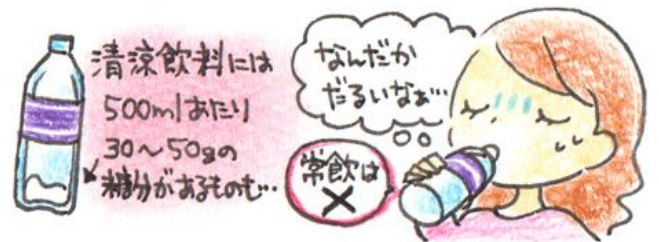 清涼飲料には
500mlあたり
30～50gの
糖分があるものも…
なんだか
だるいなぁ…
常飲は
×